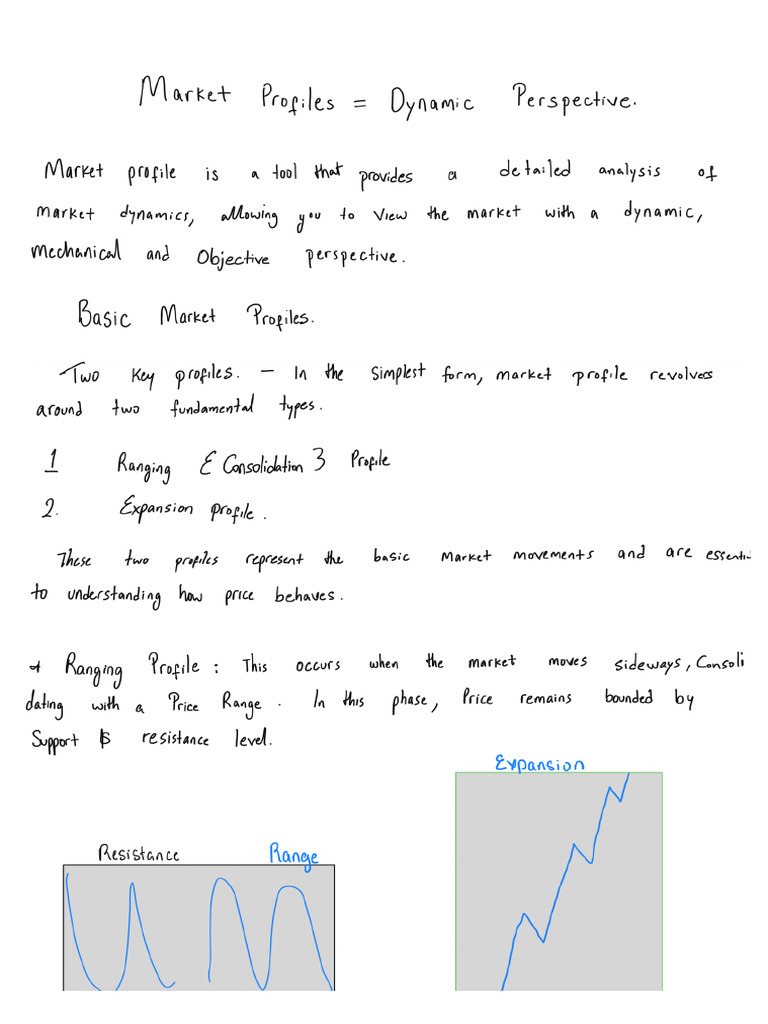 Market Profiles = Dynamic Perspective.
Market profile is a tool that provides a detailed analysis of
market dynamics, allowing you to view the market with a dynamic,
mechanical and Objective perspective.
Basic Market Profiles.
Two key profiles. - In the simplest form, market profile revolves
around two fundamental types.
1 Ranging { Consolidation } Profile
2. Expansion profile.
These two profiles represent the basic market movements and are essenti
to understanding how price behaves.
* Ranging Profile: This occurs when the market moves sideways, Consoli
dating with a Price Range. In this phase, Price remains bounded by
Support & resistance level.
Expansion
Resistance Range